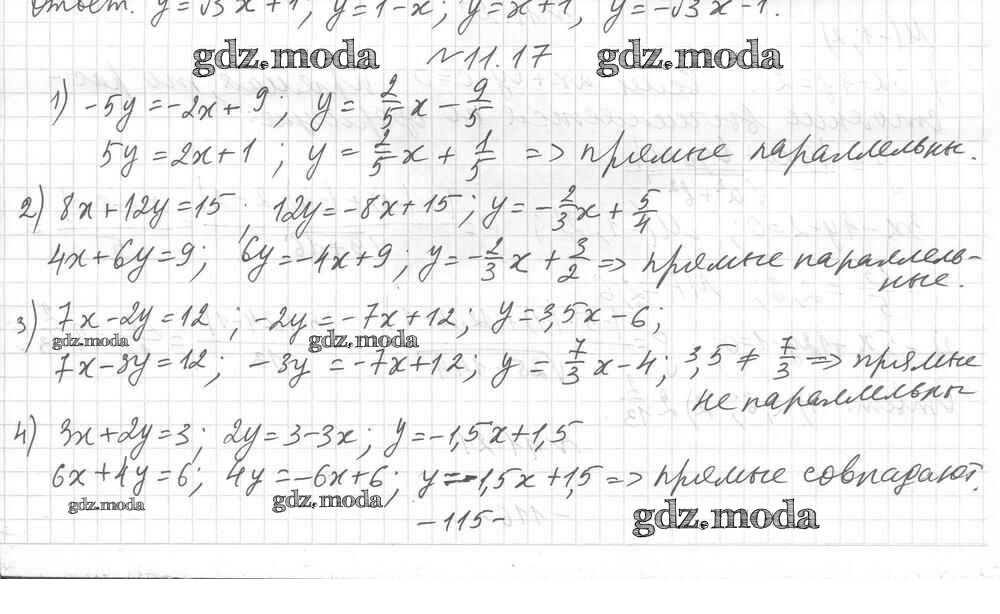 Ответ. y=√3 x+1; y=1-x; y=x+1, y=-√3 x-1.
gdz.moda №11.17 gdz.moda
1) -5y=-2x+9; y=2/5x-9/5
5y=2x+1; y=2/5x+1/5 => прямые параллельны.
2) 8x+12y=15; 12y=-8x+15; y=-2/3x+5/4
4x+6y=9; 6y=-4x+9; y=-2/3x+3/2 => прямые параллель-
ные.
3) 7x-2y=12; -2y=-7x+12; y=3,5x-6;
gdz.moda gdz.moda
7x-3y=12; -3y=-7x+12; y=7/3x-4; 3,5≠7/3 => прямые
не параллельны
4) 3x+2y=3; 2y=3-3x; y=-1,5x+1,5
6x+4y=6; 4y=-6x+6; y=-1,5x+1,5 => прямые совпадают.
gdz.moda gdz.moda gdz.moda
-115-